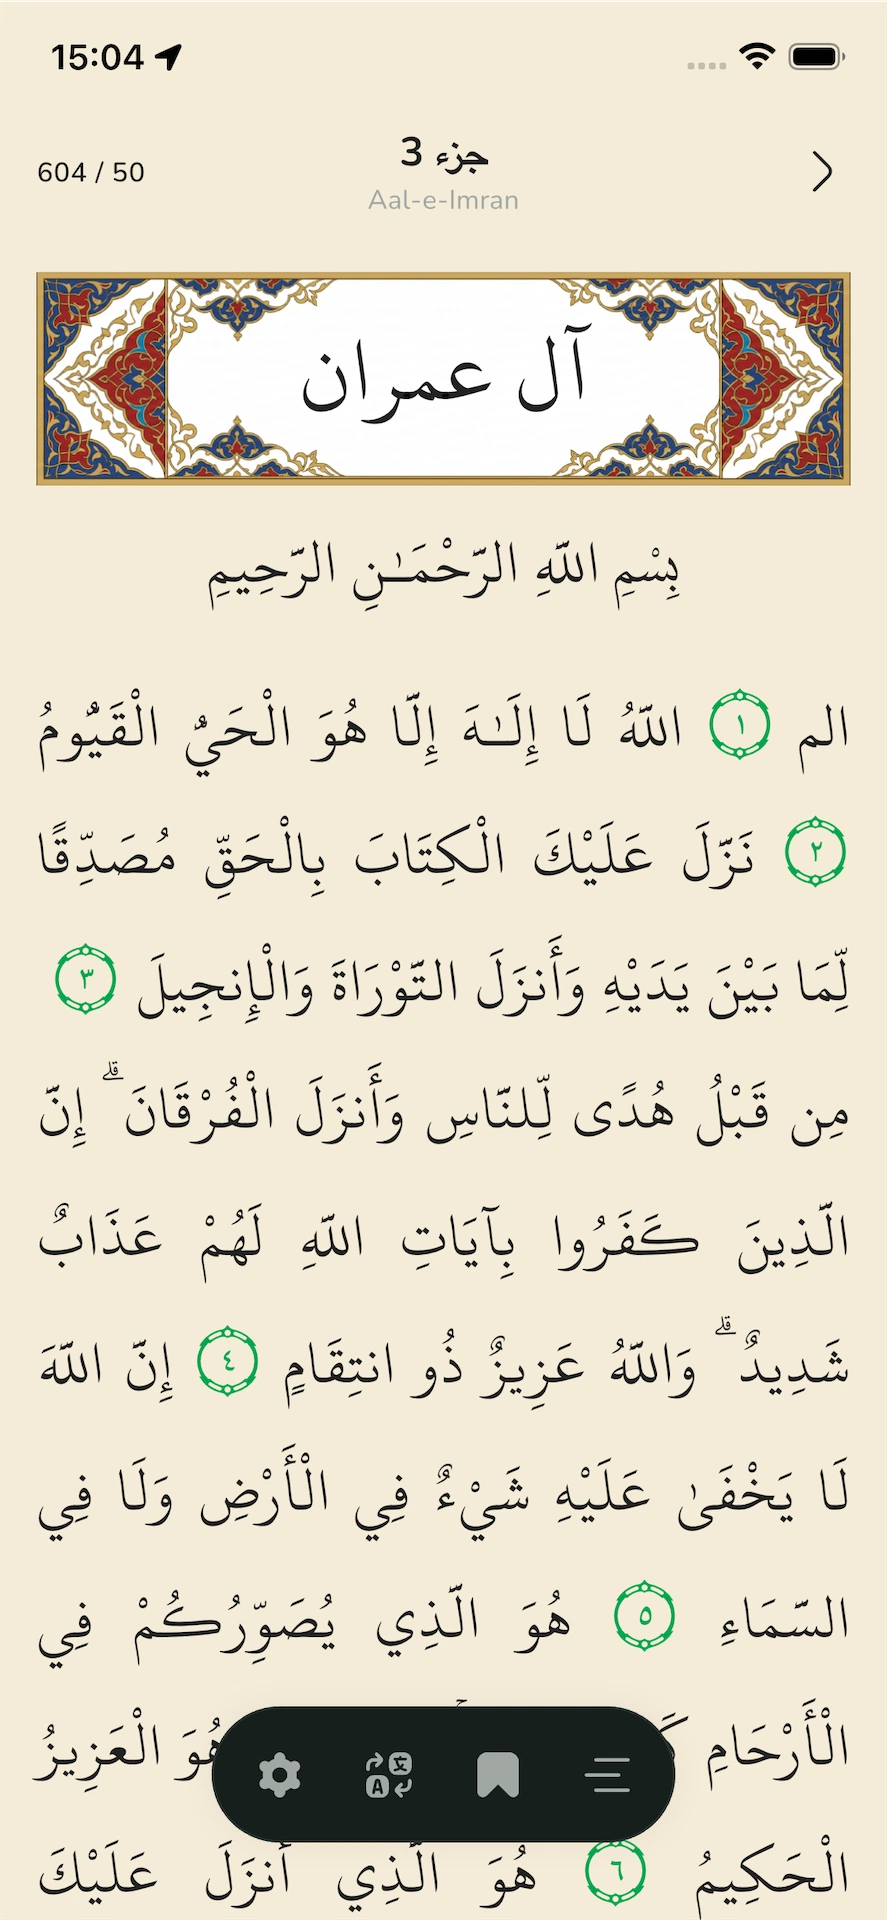 15:04
604 / 50
جزء 3
Aal-e-Imran
آل عمران
بِسْمِ اللَّهِ الرَّحْمَـٰنِ الرَّحِيمِ
الم ١ اللَّهُ لَا إِلَـٰهَ إِلَّا هُوَ الْحَيُّ الْقَيُّومُ
٢ نَزَّلَ عَلَيْكَ الْكِتَابَ بِالْحَقِّ مُصَدِّقًا
لِّمَا بَيْنَ يَدَيْهِ وَأَنزَلَ التَّوْرَاةَ وَالْإِنجِيلَ ٣
مِن قَبْلُ هُدًى لِّلنَّاسِ وَأَنزَلَ الْفُرْقَانَ ۗ إِنَّ
الَّذِينَ كَفَرُوا بِآيَاتِ اللَّهِ لَهُمْ عَذَابٌ
شَدِيدٌ ۗ وَاللَّهُ عَزِيزٌ ذُو انتِقَامٍ ٤ إِنَّ اللَّهَ
لَا يَخْفَىٰ عَلَيْهِ شَيْءٌ فِي الْأَرْضِ وَلَا فِي
السَّمَاءِ ٥ هُوَ الَّذِي يُصَوِّرُكُمْ فِي
الْأَرْحَامِ هُوَ الْعَزِيزُ
الْحَكِيمُ ٦ هُوَ الَّذِي أَنزَلَ عَلَيْكَ